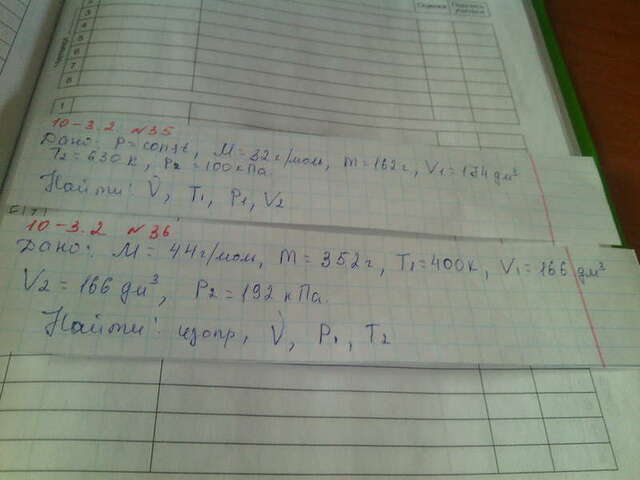 Оценка
Подпись
3
4
5
6
7
8
1
10-3.2. №35
Дано: P=const, M=32г/моль, m=162г, V1=154 дм³
T2=630К, P2=100кПа
Найти: ν, T1, P1, V2
10-3.2 №36
Дано: M=44г/моль, m=352г, T1=400К, V1=166 дм³
V2=166 дм³, P2=192 кПа.
Найти: изопр, ν, P1, T2